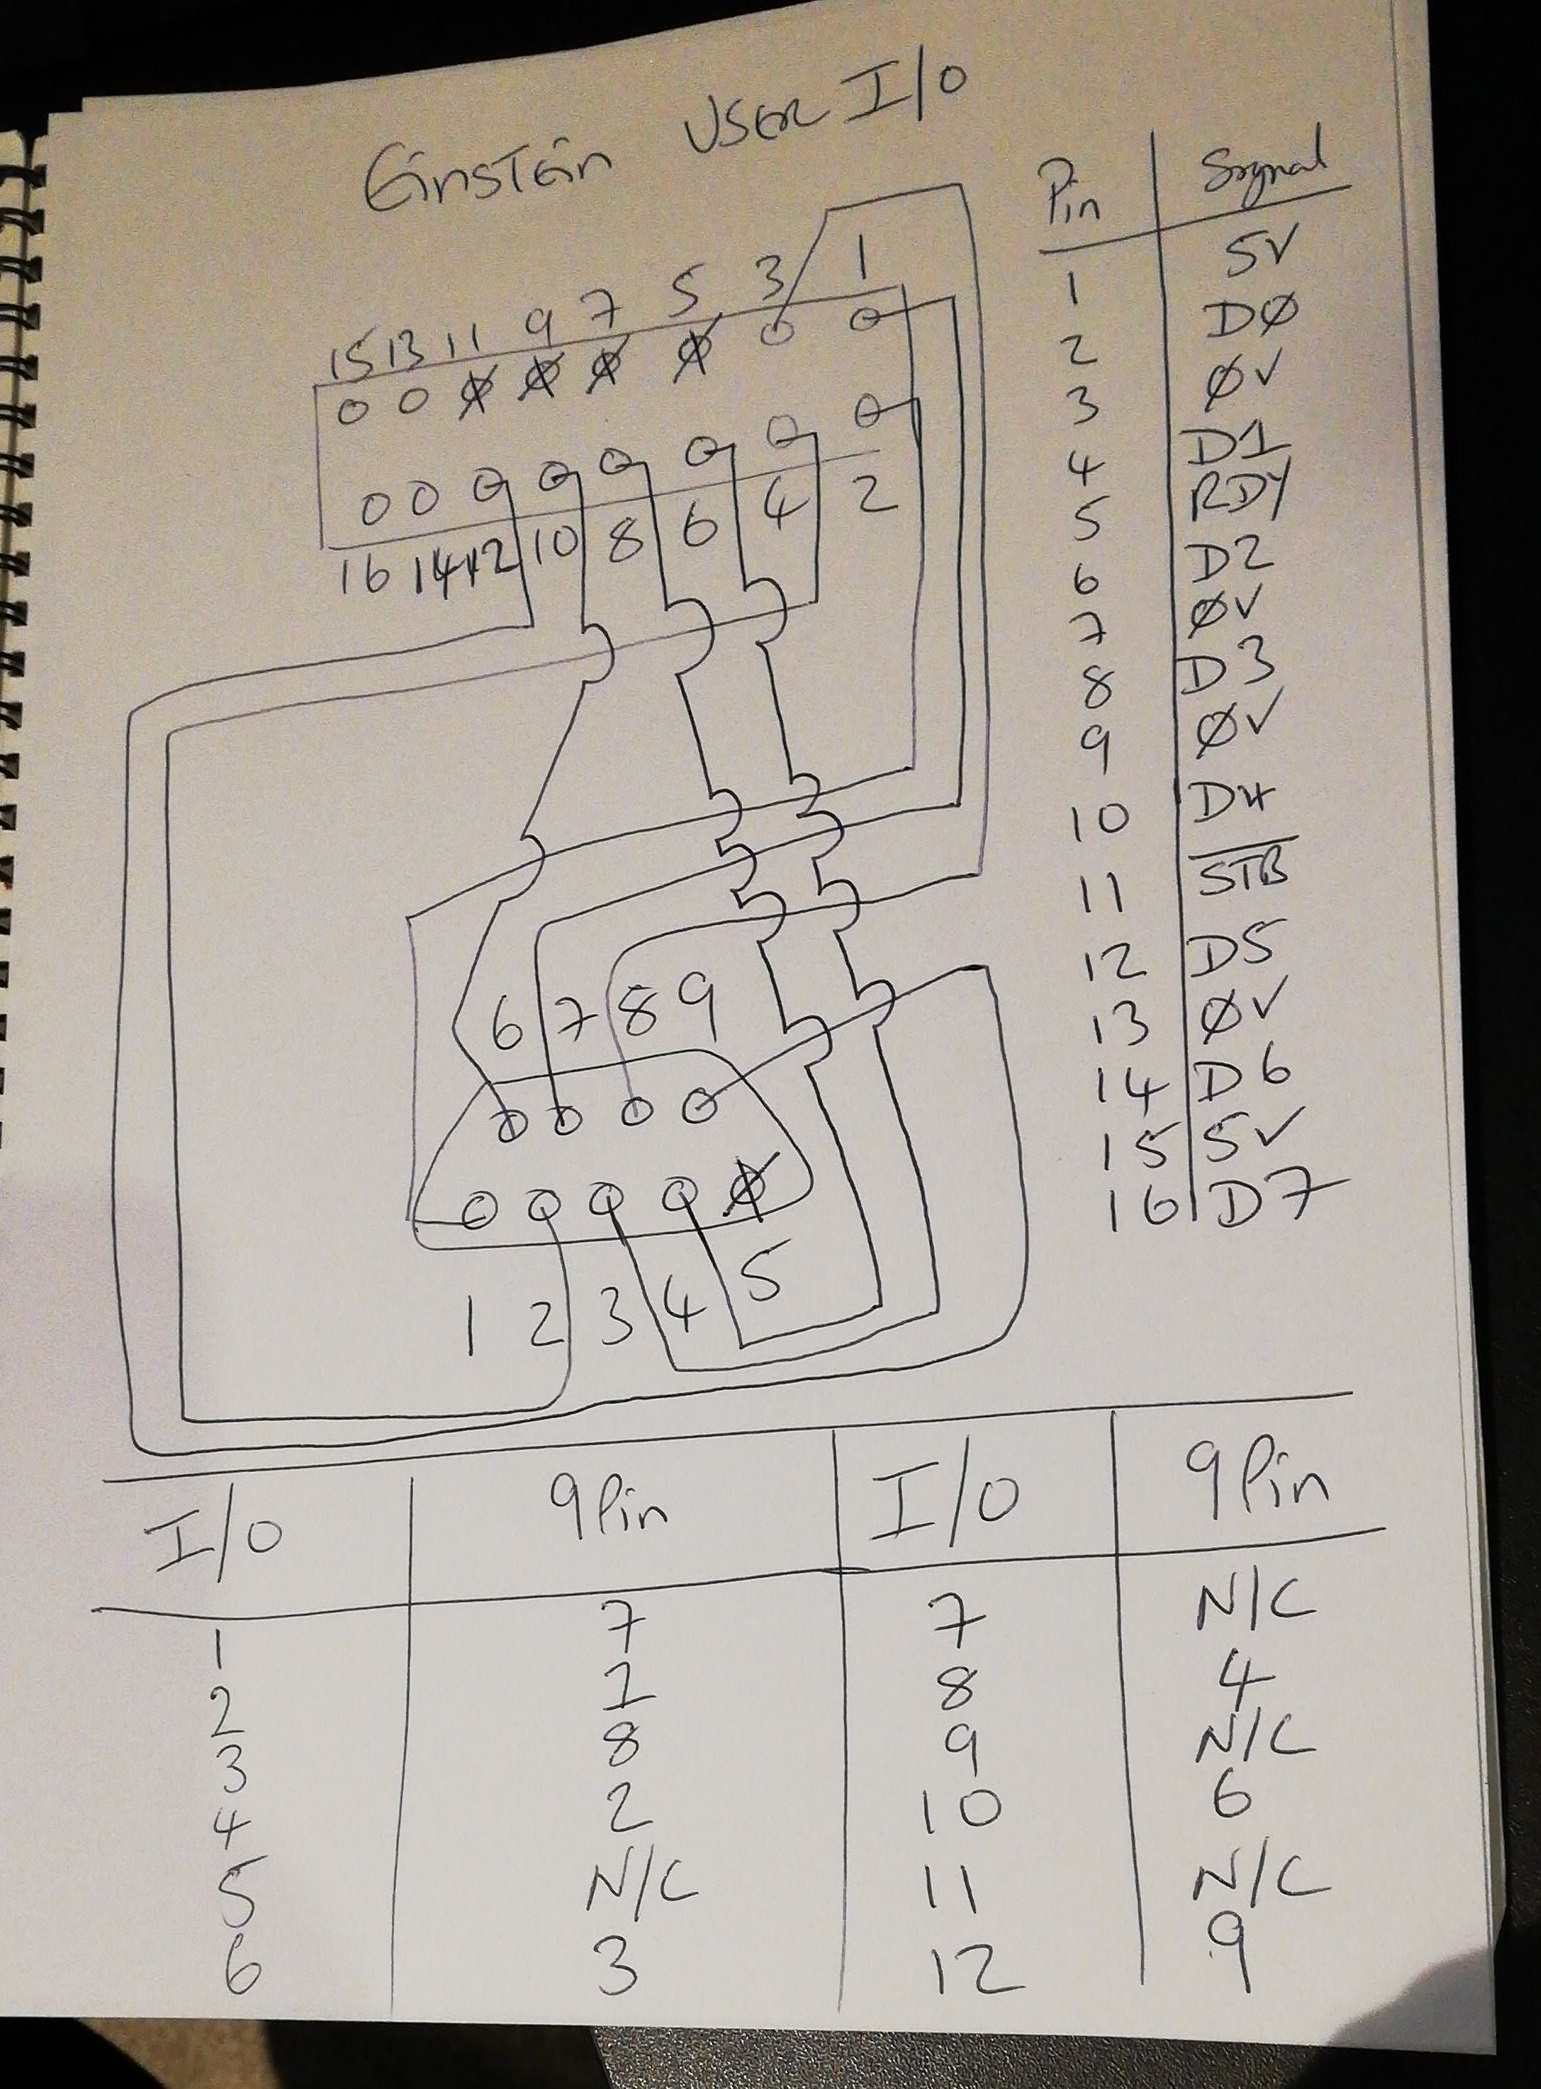 Einstein User I/O
Pin Signal
1 5V
2 DØ
3 ØV
4 D1
5 RDY
6 D2
7 ØV
8 D3
9 ØV
10 D4
11 STB
12 D5
13 ØV
14 D6
15 5V
16 D7
15 13 11 9 7 5 3 1
16 14 12 10 8 6 4 2
6 7 8 9
1 2 3 4 5
I/O 9Pin I/O 9Pin
1 7 7 N/C
2 1 8 4
3 8 9 N/C
4 2 10 6
5 N/C 11 N/C
6 3 12 9